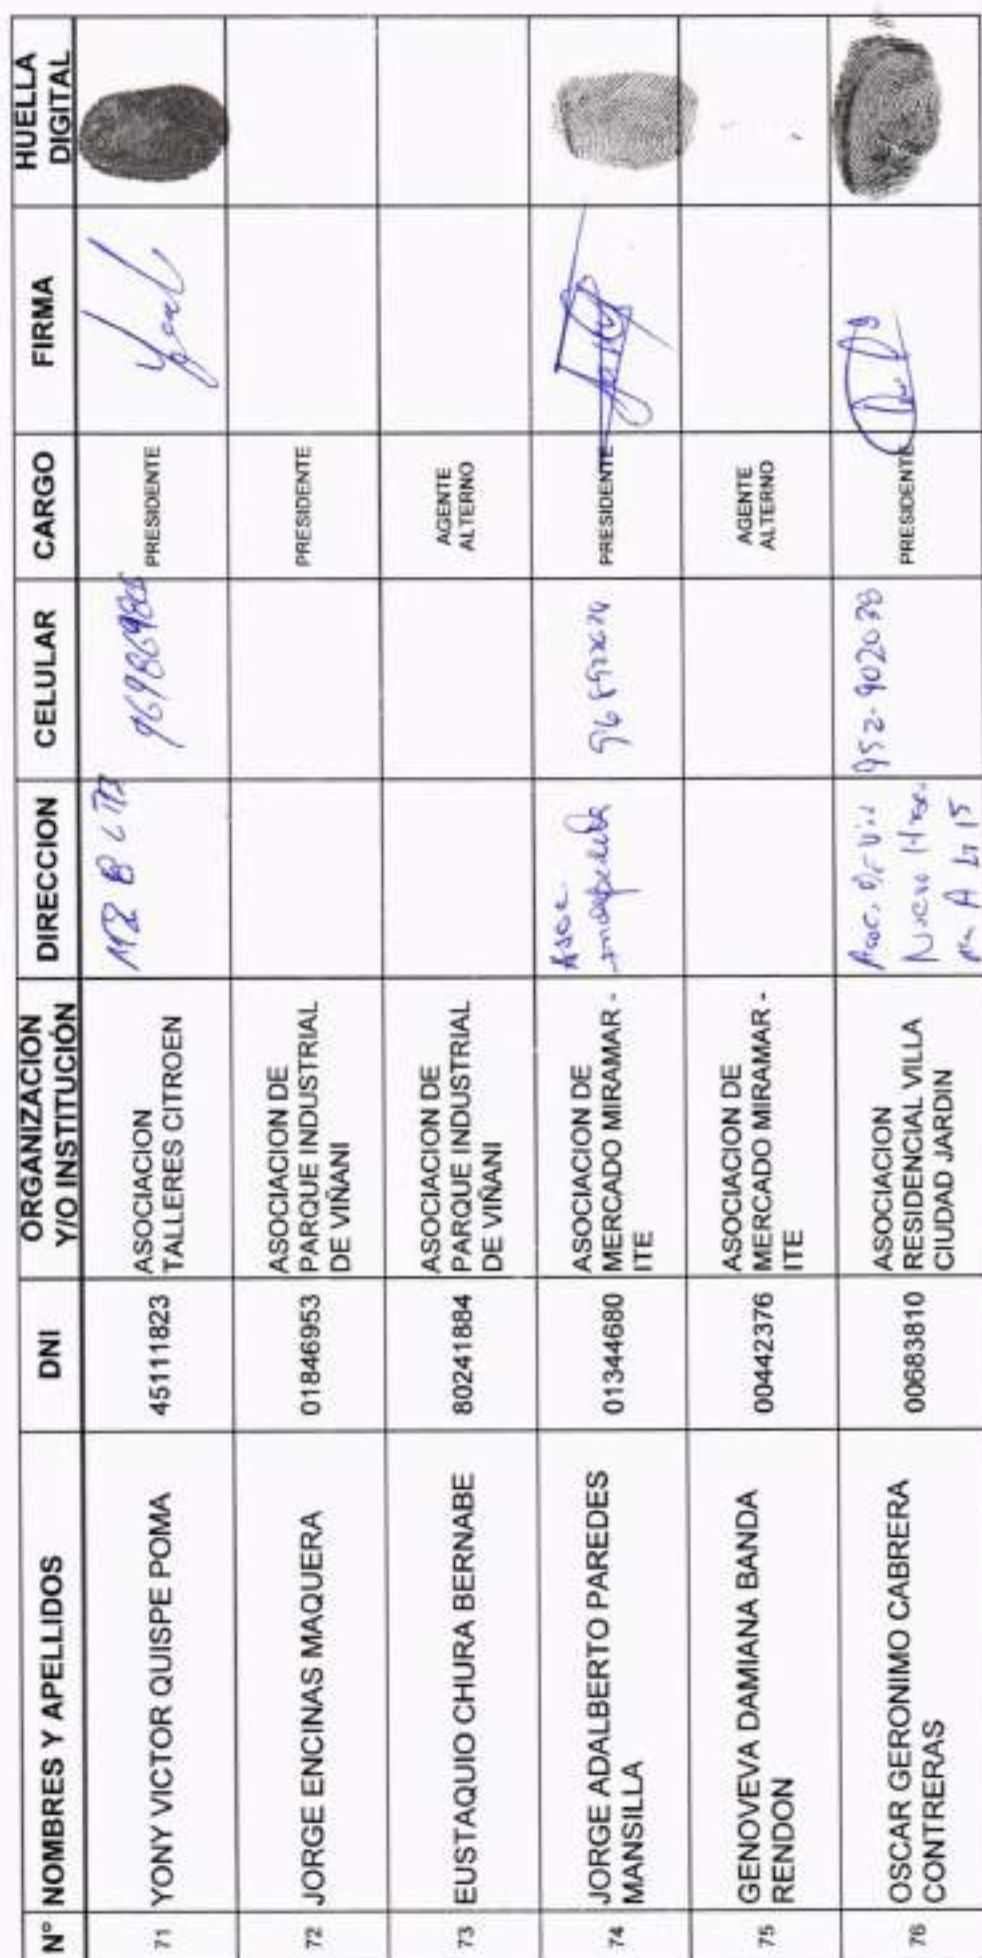 N° NOMBRES Y APELLIDOS DNI ORGANIZACION Y/O INSTITUCIÓN DIRECCION CELULAR CARGO FIRMA HUELLA DIGITAL
71 YONY VICTOR QUISPE POMA 45111823 ASOCIACION
TALLERES CITROEN MZ B PRESIDENTE
72 JORGE ENCINAS MAQUERA 01846953 ASOCIACION DE
PARQUE INDUSTRIAL
DE VIÑANI PRESIDENTE
73 EUSTAQUIO CHURA BERNABE 80241884 ASOCIACION DE
PARQUE INDUSTRIAL
DE VIÑANI AGENTE
ALTERNO
74 JORGE ADALBERTO PAREDES
MANSILLA 01344680 ASOCIACION DE
MERCADO MIRAMAR -
ITE Asoc. PRESIDENTE
75 GENOVEVA DAMIANA BANDA
RENDON 00442376 ASOCIACION DE
MERCADO MIRAMAR -
ITE AGENTE
ALTERNO
76 OSCAR GERONIMO CABRERA
CONTRERAS 00683810 ASOCIACION
RESIDENCIAL VILLA
CIUDAD JARDIN 952-902038 PRESIDENTE